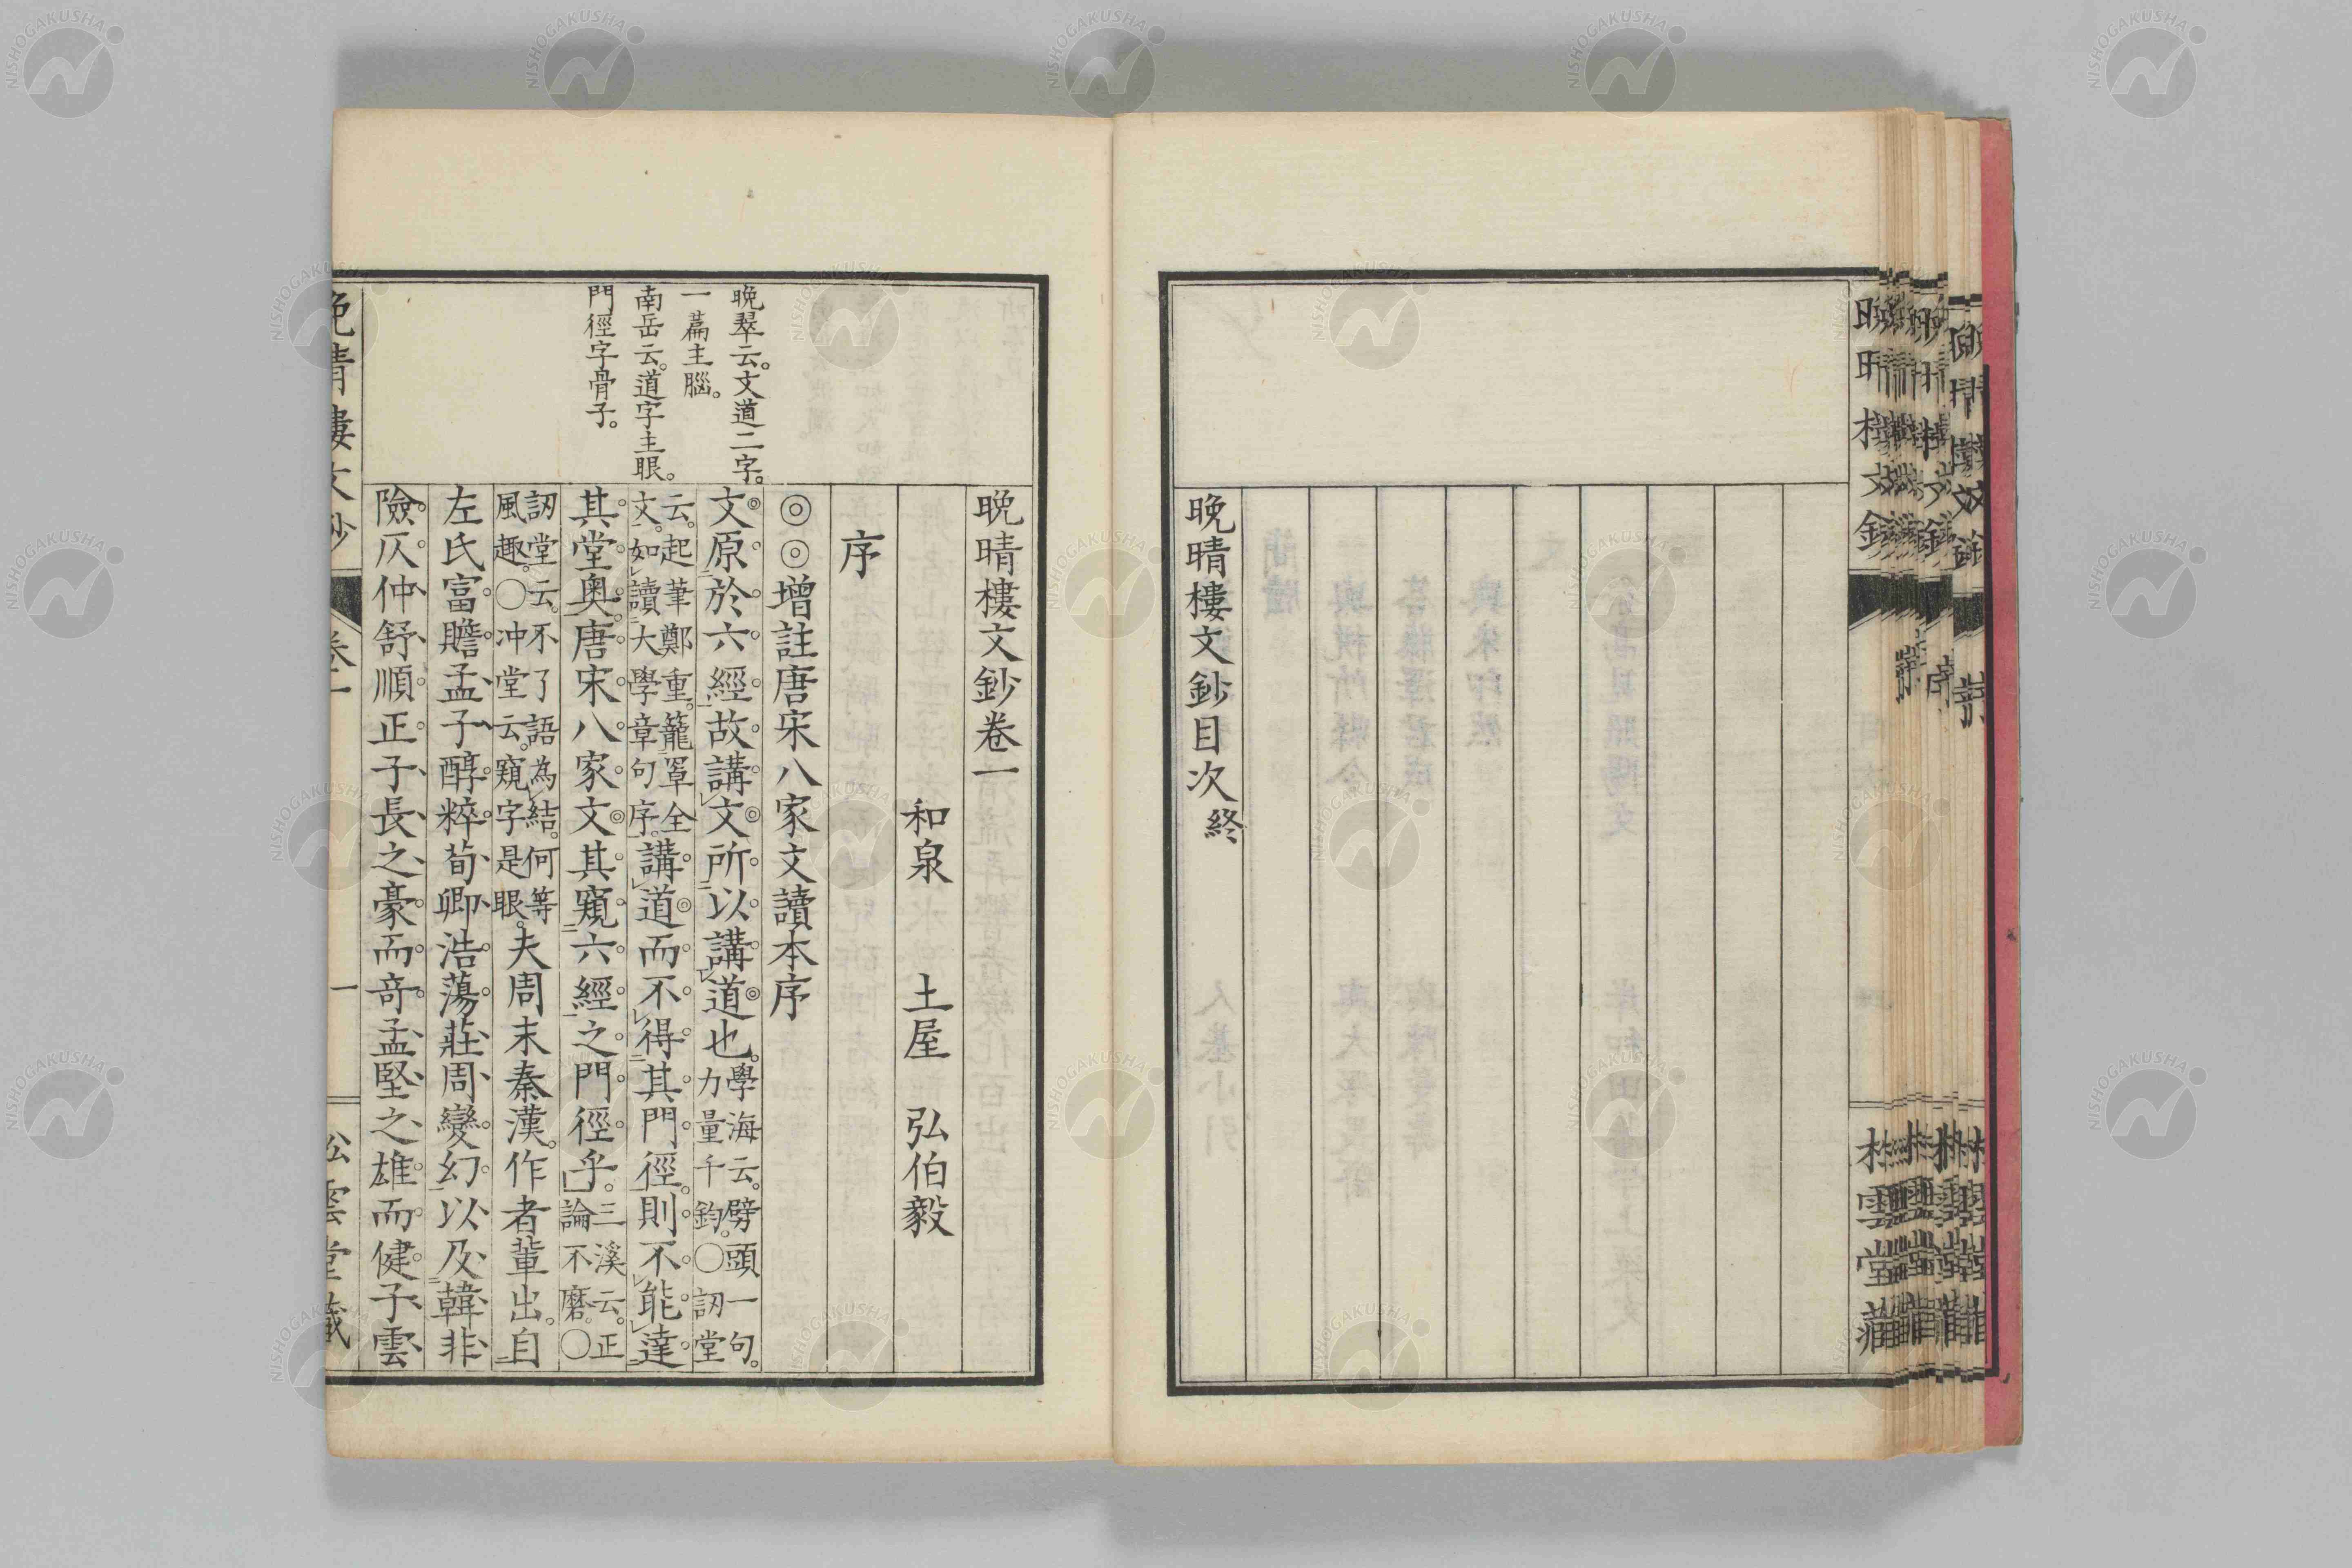 晩晴樓文鈔目次終
晩晴樓文鈔卷一
和泉 土屋 弘伯毅
序
◎◎增註唐宋八家文讀本序
文原於六經故講文所以講道也。學海云。劈頭一句。力量千鈞。〇訒堂
云。起筆鄭重。籠罩全文。如讀大學章句序。講道而不得其門徑。則不能達
其堂奧。唐宋八家文其窺六經之門徑乎。三溪云。正論不磨。〇
訒堂云。不了語為結。何等風趣。〇冲堂云。窺字是眼。夫周末秦漢。作者輩出。自
左氏富贍孟子醇粹。荀卿浩蕩。莊周變幻。以及韓非
險仄。仲舒順正。子長之豪而奇。孟堅之雄而健。子雲
晩翠云。文道二字。
一篇主腦。
南岳云。道字主眼。
門徑字骨子。
晩晴樓文鈔 卷一 一 松雲堂藏
NISHOGAKUSHA